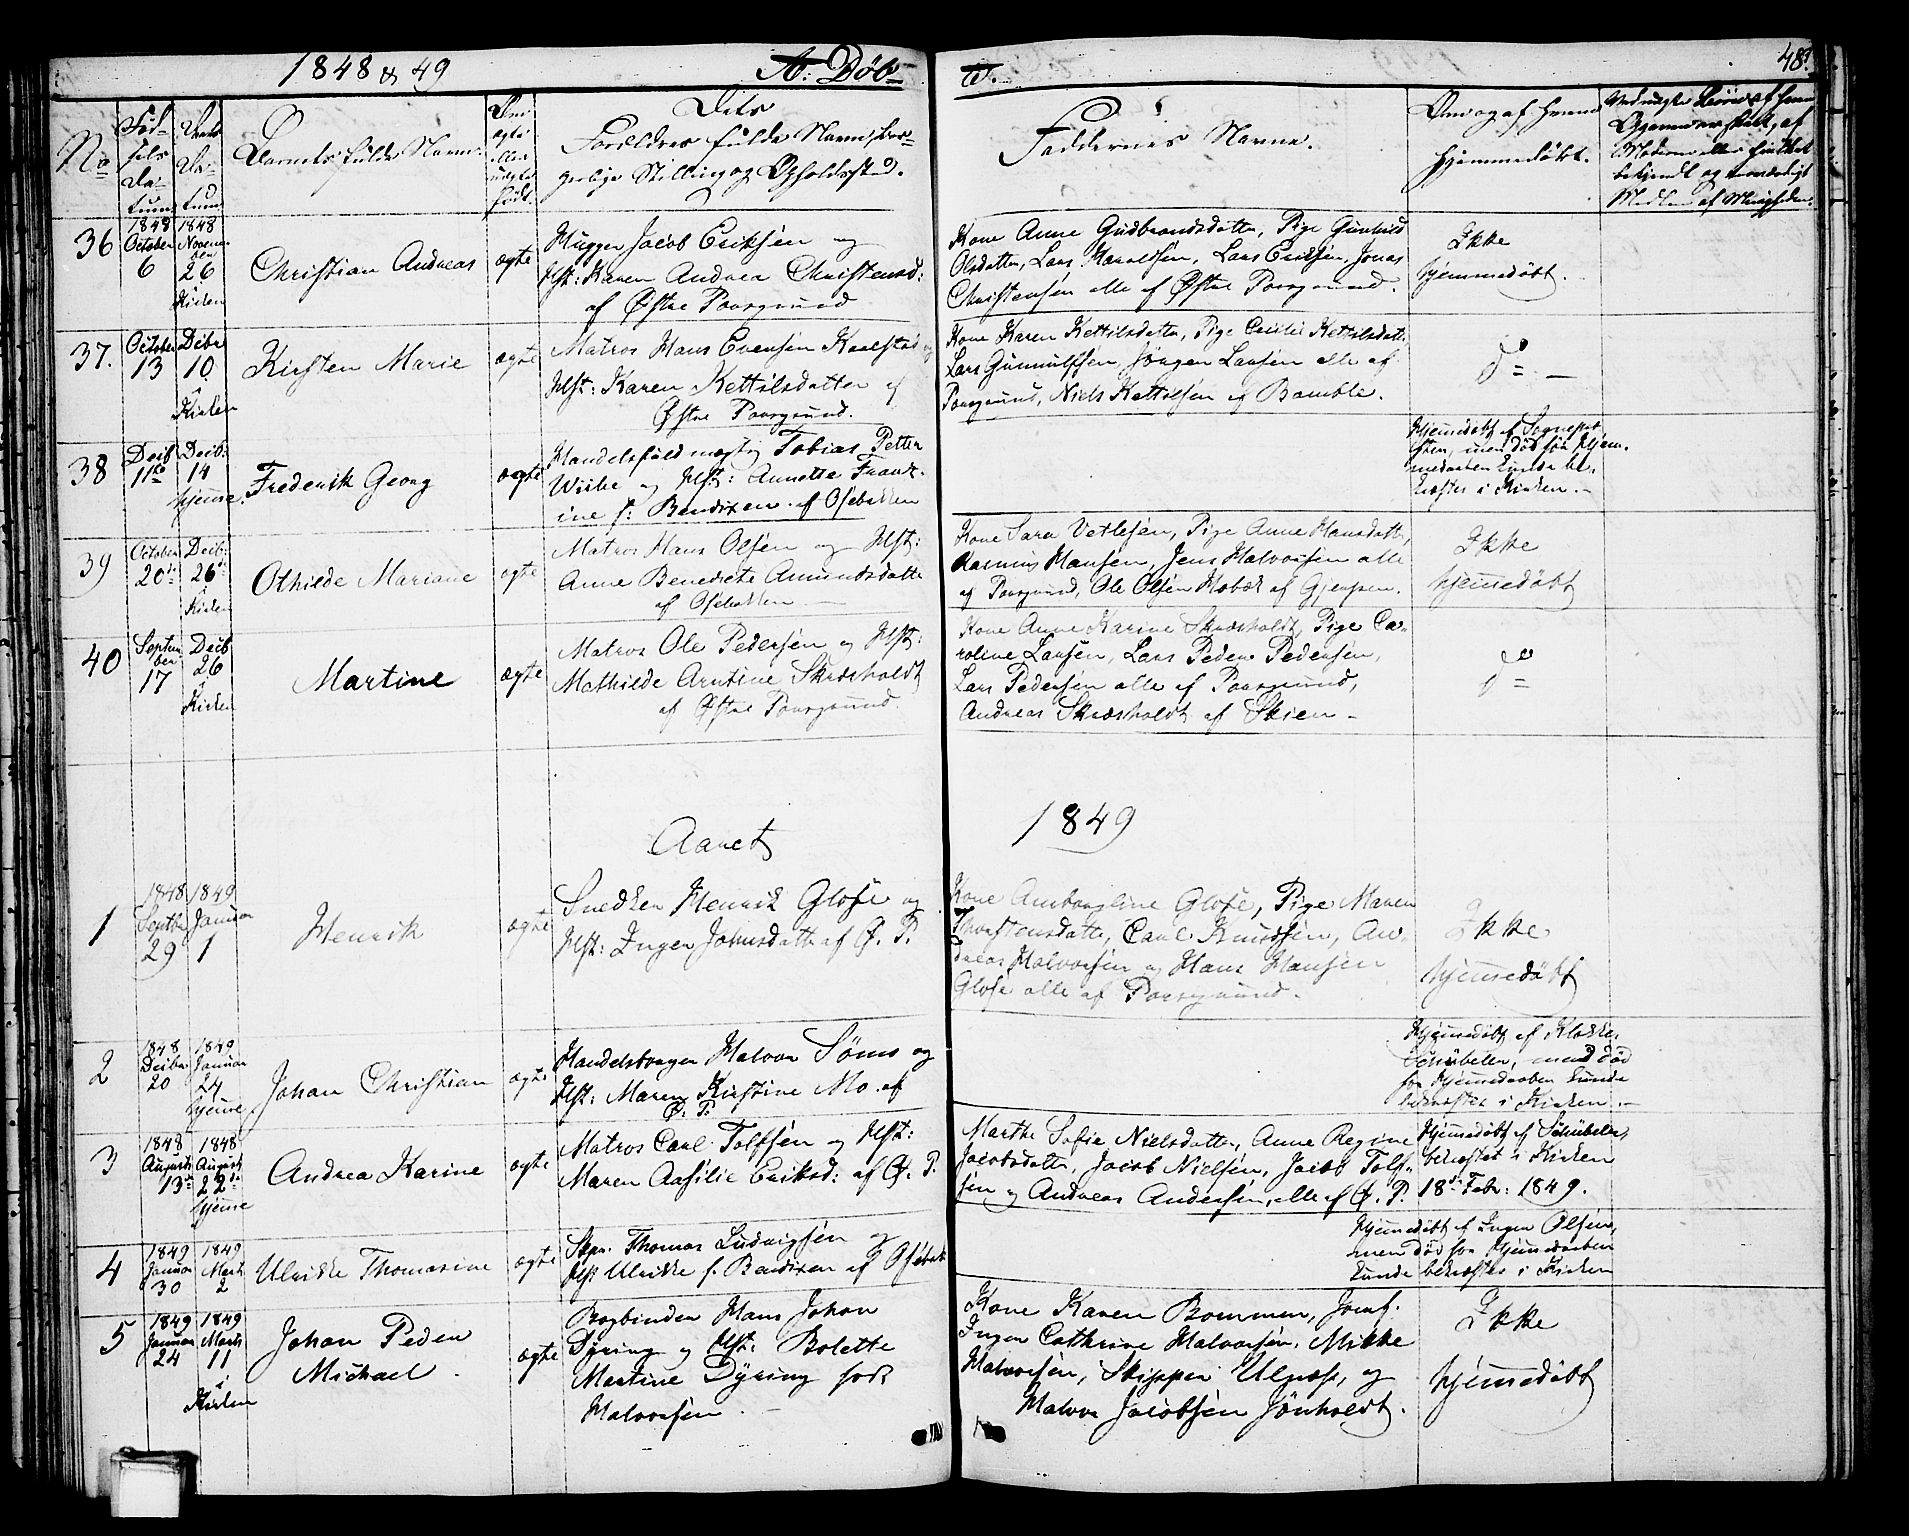 1848 & 49
A. Døb-
te.
48.
No
Fød-
sels
Da-
tum
Daabs
Da-
tum
Barnets fulde Navn.
Om
ægte
eller
uægte
født.
Dets
Forældres fulde Navn, bor-
gerlige Stilling og Opholdssted.
Faddernes Navne.
Om og af hvem
hjemmedøbt.
36
1848
October
6
1848
Novem-
ber
26
i
Kirken
Christian Andreas
ægte
Hugger Jacob Eriksen og
Hst: Karen Andrea Christensd:
af Østre Porsgrund
Kone Anne Gudbrandsdatter, Pige Gunhild
Olsdatter, Lars Haraldsen, Lars Eriksen, Jonas
Christensen alle af Østre Porsgrund.
Ikke
hjemmedøbt.
37.
October
13
Decbr
10
i
Kirken
Kirsten Marie
ægte
Matros Hans Evensen Kaalstad og
Hst: Karen Kettilsdatter af
Østre Porsgrund.
Kone Karen Kettilsdatter, Pige Cecilie Kettilsdatt:
Lars Gunnulfsen, Jørgen Larsen alle af
Porsgrund, Niels Kettelsen af Bamble.
do = —
38
Decb
11te
Decb:
14
hjemme.
Frederik Georg
ægte
Handelsfuldmægtig Tobias Petter
Wiibe og Hst: Annette Frantz-
ine f: Bendixen af Osebakken
Hjemmedøbt af Sognepræ-
sten, men død før Hjem-
medaaben kunde be-
kræftes i Kirken.-
39
October
20de
Decb:
26de
i
Kirken
Othilde Mariane
ægte
Matros Hans Olsen og Hst:
Anne Benedicte Amundsdatter
af Osebakken
Kone Sara Vetlesen, Pige Anne Hansdatter,
Rasmus Hansen, Jens Halvorsen alle
af Porsgrund, Ole Olsen Mobæk af Gjerpen.
Ikke
hjemmedøbt
40
Septem
ber
17
Decb
26
i
Kirken
Martine
ægte
Matros Ole Pedersen og Hst:
Mathilde Arntine Skrosholdt
af Østre Porsgrund.
Kone Anne Karine Skrosholdt, Pige Ca-
roline Larsen, Lars Peder Pedersen,
Lars Pedersen alle af Porsgrund,
Andreas Skrosholdt af Skien -
do =
Aaret
1849
1
1848
Septbr
29
1849
Januar
1
Henrik
ægte
Snedker Henrik Glose og
Hst: Inger Johnsdatter af Ø. P.
Kone Glose, Pige Maren
Thorstensdatter, Carl Knudsen, An-
dreas Halvorsen og Hans Hansen
Glose alle af Porsgrund.
Ikke
hjemmedøbt
2
1848
Decbr
20
1849
Januar
24
hjemme
Johan Christian
ægte
Handelsborger Halvor Søms og
Hst: Maren Kirstine Mo. af
Ø. P.
Hjemmedøbt af Klokker
Schübeler, men død
før Hjemmedaaben kunde
bekræftes i Kirken.-
3
1848
August
13de
1848
August
22de
hjemme
Andrea Karine
ægte
Matros Carl Tolfsen og Hst:
Maren Aasilie Eriksd: af Ø. P.
Marthe Sofie Nielsdatter, Anne Regine
Jacobsdatter, Jacob Nielsen, Jacob Tolf-
sen og Andreas Andersen, alle af Ø. P.
Hjemmedøbt af Schübeler,
bekræftet i Kirken
18de Febr: 1849.
4
1849
Januar
30
1849
Marts
2
Ulrikke Thomasine
ægte
Skpr. Thomas Ludvigsen og
Hst Ulrikke f. Bendixen af Osebak
Hjemmedøbt af Inger Olsen,
men død før Hjemmedaaben
kunde bekræftes i Kirken
5
1849
Januar
24
1849
Marts
11
i
Kirken
Johan Peder
Michael
ægte
Bogbinder Hans Johan
Dyring og Hst: Bolette
Martine Dyring født
Halvorsen.
Kone Karen Bommen, Jomf.
Inger Cathrine Halvorsen, Mikke
Halvorsen, Skipper Ulness, og
Halvor Jacobsen Jønholdt.
Ikke
hjemmedøbt